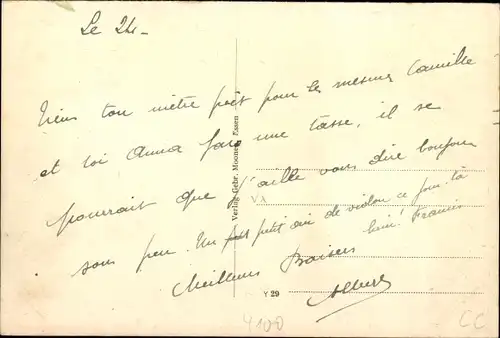 Le 24-
Tiens ton mètre prêt pour les mesures Camille
et toi Anna fais une tasse, il se
pourrait que j'aille vous dire bonjour
sous peu. Un petit air de violon ce jour-là
hein! Francis
Meilleurs Baisers
Verlag Gebr. Moonen, Essen
Y 29
4100
CC